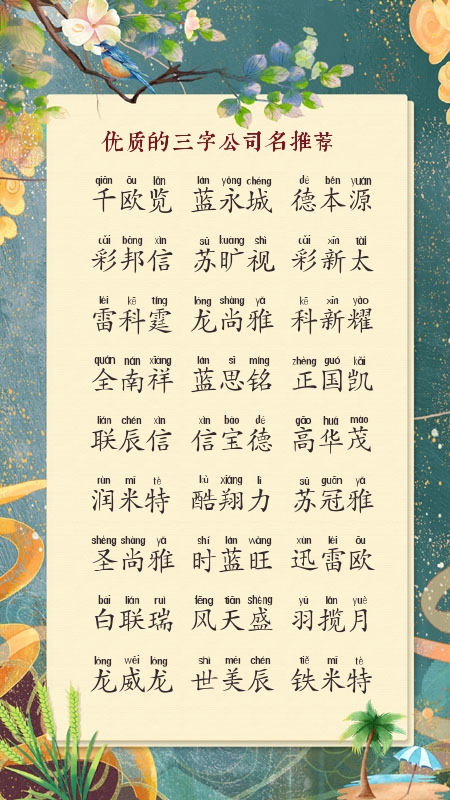 优质的三字公司名推荐
qiān ōu lǎn lán yǒng chéng dé běn yuán
千欧览 蓝永城 德本源
cǎi bāng xìn sū kuàng shì cǎi xīn tài
彩邦信 苏旷视 彩新太
léi kē tíng lóng shàng yǎ kē xīn yào
雷科霆 龙尚雅 科新耀
quán nán xiáng lán sī míng zhèng guó kǎi
全南祥 蓝思铭 正国凯
lián chén xìn xìn bǎo dé gāo huá mào
联辰信 信宝德 高华茂
rùn mǐ tè kù xiáng lì sū guān yǎ
润米特 酷翔力 苏冠雅
shèng shàng yǎ shí lán wàng xùn léi ōu
圣尚雅 时蓝旺 迅雷欧
bai lián ruì fēng tiān shèng yǔ lǎn yuè
白联瑞 风天盛 羽揽月
lóng wēi lóng shì měi chén tiě mǐ tè
龙威龙 世美辰 铁米特